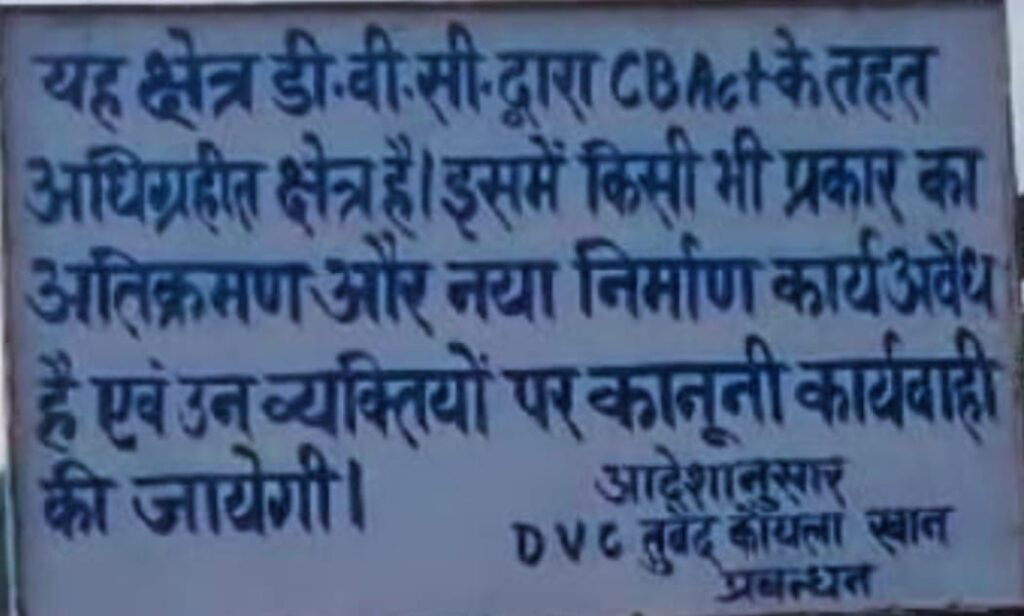 यह क्षेत्र डी.वी.सी. द्वारा CB Act के तहत
अधिग्रहीत क्षेत्र है। इसमें किसी भी प्रकार का
अतिक्रमण और नया निर्माण कार्य अवैध
है एवं उन व्यक्तियों पर कानूनी कार्यवाही
की जायेगी।
आदेशानुसार
DVC तुबेद कोयला खान
प्रबन्धन